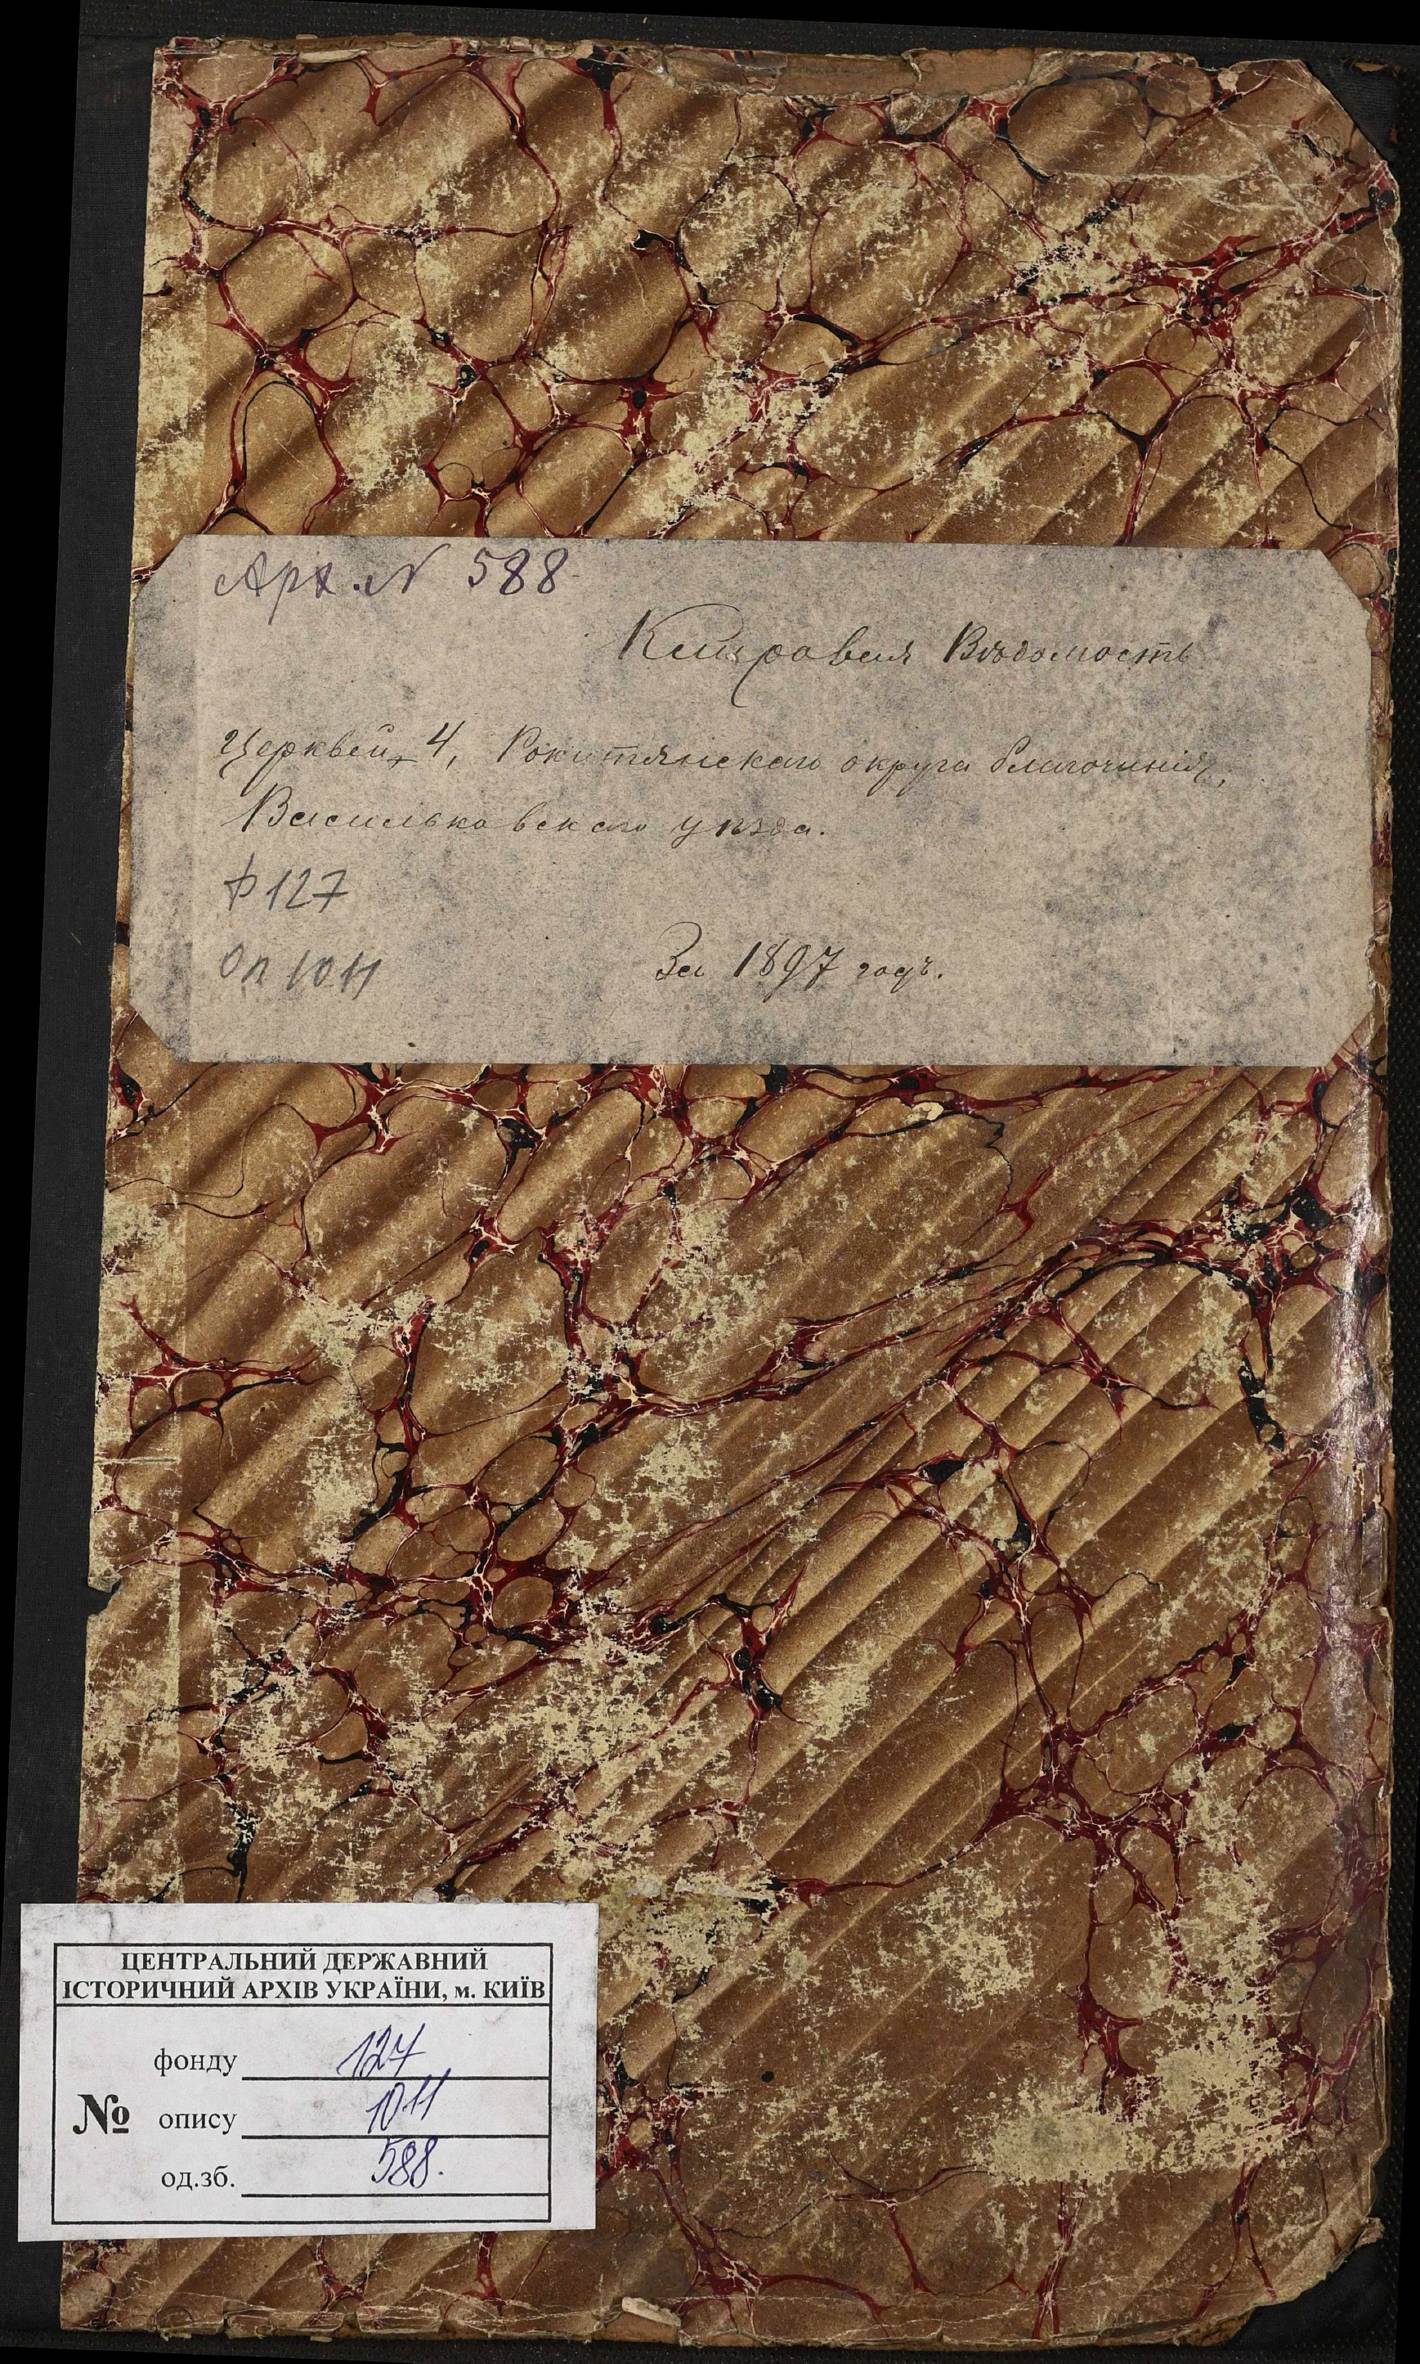 Арх. N 588
Клировая Вѣдомость
Церквей 4, Рокитянскаго округа благочинія,
Васильковскаго уѣзда.
Ф 127
Оп 1011
За 1897 годъ.
ЦЕНТРАЛЬНИЙ ДЕРЖАВНИЙ
ІСТОРИЧНИЙ АРХІВ УКРАЇНИ, м. КИЇВ
фонду 127
№ опису 1011
од.зб. 588.